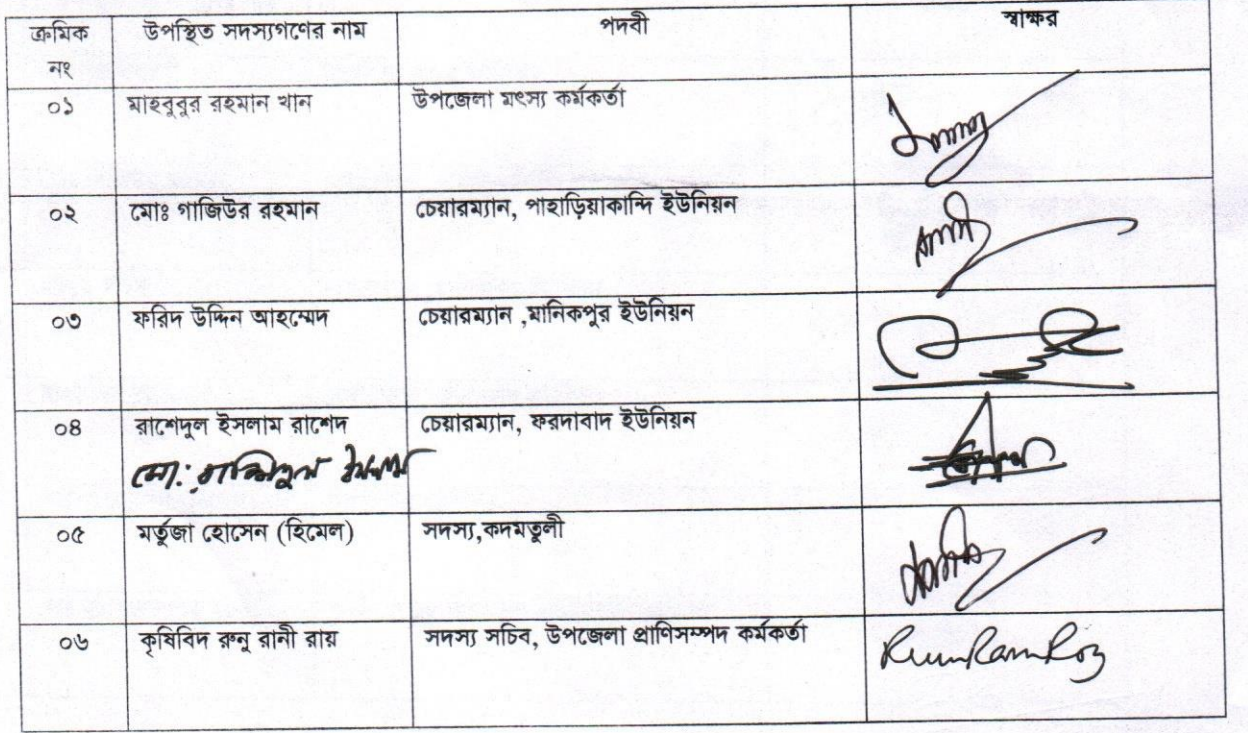 ক্রমিক নং উপস্থিত সদস্যগণের নাম পদবী স্বাক্ষর
০১ মাহবুবুর রহমান খান উপজেলা মৎস্য কর্মকর্তা
০২ মোঃ গাজিউর রহমান চেয়ারম্যান, পাহাড়িয়াকান্দি ইউনিয়ন
০৩ ফরিদ উদ্দিন আহম্মেদ চেয়ারম্যান ,মানিকপুর ইউনিয়ন
০৪ রাশেদুল ইসলাম রাশেদ চেয়ারম্যান, ফরদাবাদ ইউনিয়ন
মো:
০৫ মর্তুজা হোসেন (হিমেল) সদস্য,কদমতুলী
০৬ কৃষিবিদ রুনু রানী রায় সদস্য সচিব, উপজেলা প্রাণিসম্পদ কর্মকর্তা